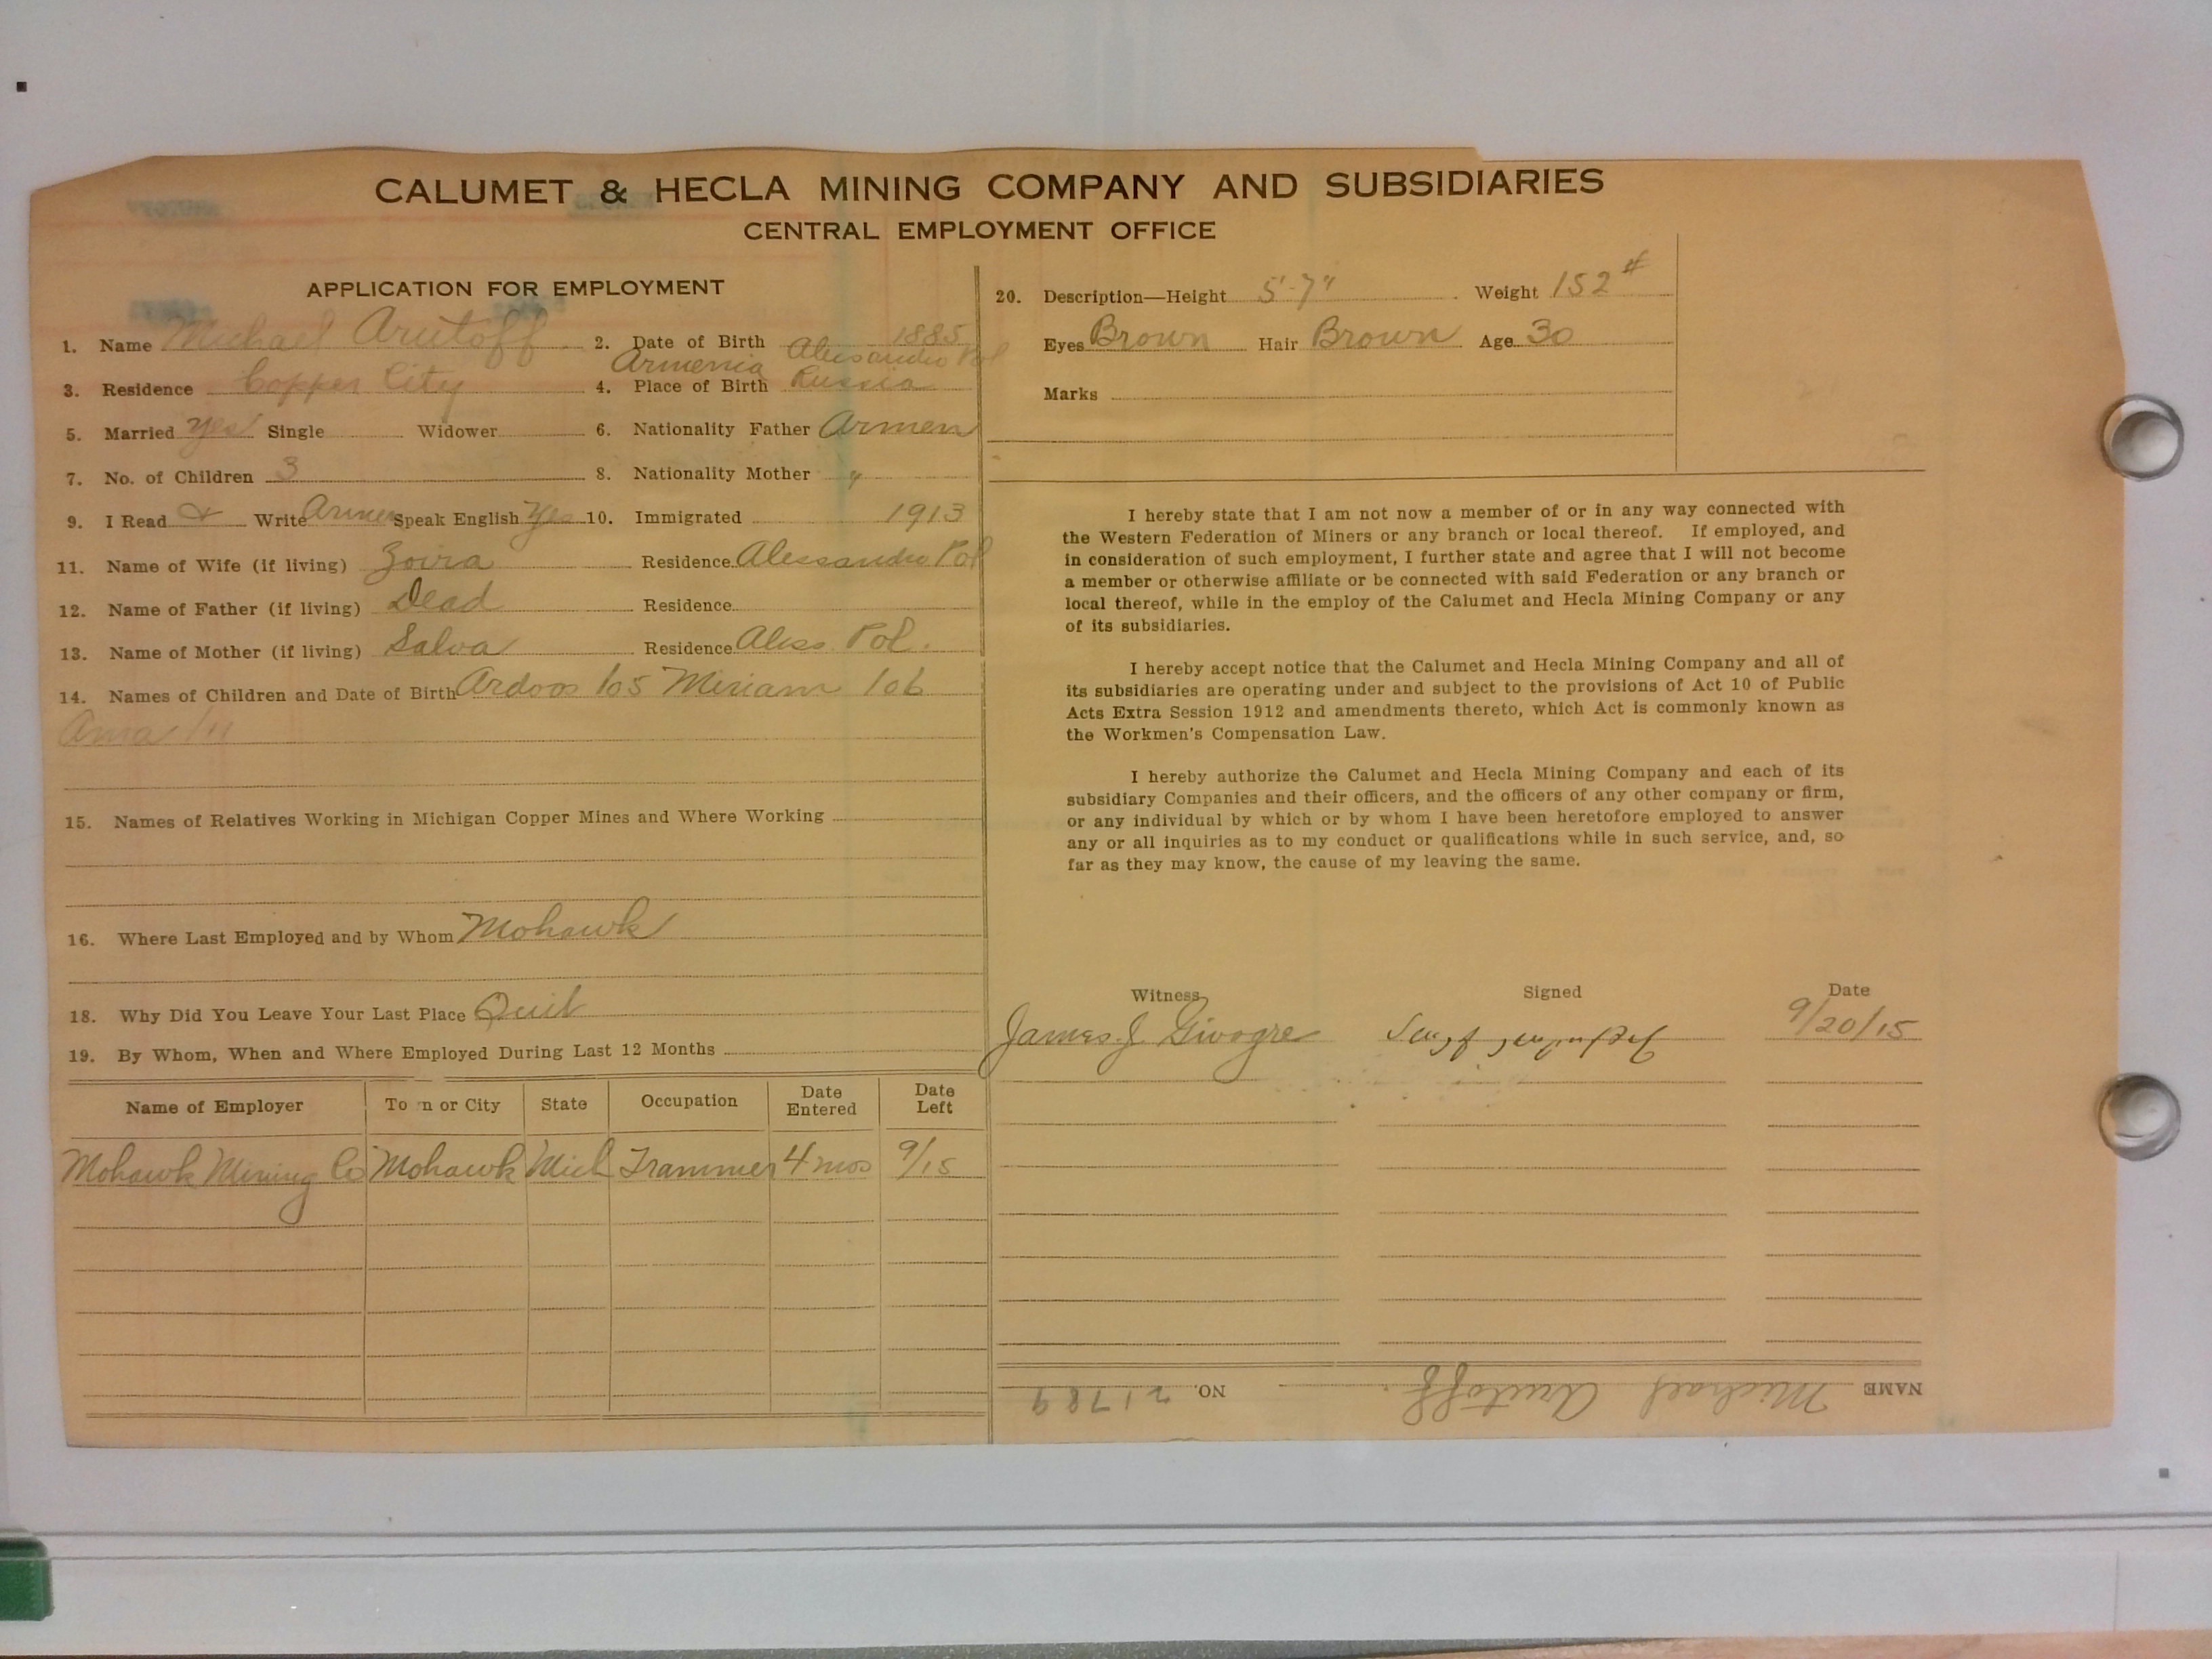 CALUMET & HECLA MINING COMPANY AND SUBSIDIARIES
CENTRAL EMPLOYMENT OFFICE
APPLICATION FOR EMPLOYMENT
1. Name Michael Arutoff 2. Date of Birth 1885
Armenia Alessandro Pol
3. Residence Copper City 4. Place of Birth Russia
5. Married Yes Single Widower 6. Nationality Father Armen
7. No. of Children 3 8. Nationality Mother "
9. I Read & Write Armen Speak English Yes 10. Immigrated 1913
11. Name of Wife (if living) Zoira Residence Alessandro Pol
12. Name of Father (if living) Dead Residence
13. Name of Mother (if living) Salva Residence Aless. Pol.
14. Names of Children and Date of Birth Ardoos 105 Miriam 106
Anna 111
15. Names of Relatives Working in Michigan Copper Mines and Where Working
16. Where Last Employed and by Whom Mohawk
18. Why Did You Leave Your Last Place Quit
19. By Whom, When and Where Employed During Last 12 Months
Name of Employer To n or City State Occupation Date Entered Date Left
Mohawk Mining Co Mohawk Mich Trammer 4 mos 9/15
20. Description—Height 5'-7" Weight 152 #
Eyes Brown Hair Brown Age 30
Marks
I hereby state that I am not now a member of or in any way connected with
the Western Federation of Miners or any branch or local thereof. If employed, and
in consideration of such employment, I further state and agree that I will not become
a member or otherwise affiliate or be connected with said Federation or any branch or
local thereof, while in the employ of the Calumet and Hecla Mining Company or any
of its subsidiaries.
I hereby accept notice that the Calumet and Hecla Mining Company and all of
its subsidiaries are operating under and subject to the provisions of Act 10 of Public
Acts Extra Session 1912 and amendments thereto, which Act is commonly known as
the Workmen's Compensation Law.
I hereby authorize the Calumet and Hecla Mining Company and each of its
subsidiary Companies and their officers, and the officers of any other company or firm,
or any individual by which or by whom I have been heretofore employed to answer
any or all inquiries as to my conduct or qualifications while in such service, and, so
far as they may know, the cause of my leaving the same.
Witness Signed Date
James J. Givogre 9/20/15
NAME Michael Arutoff. NO. 21789